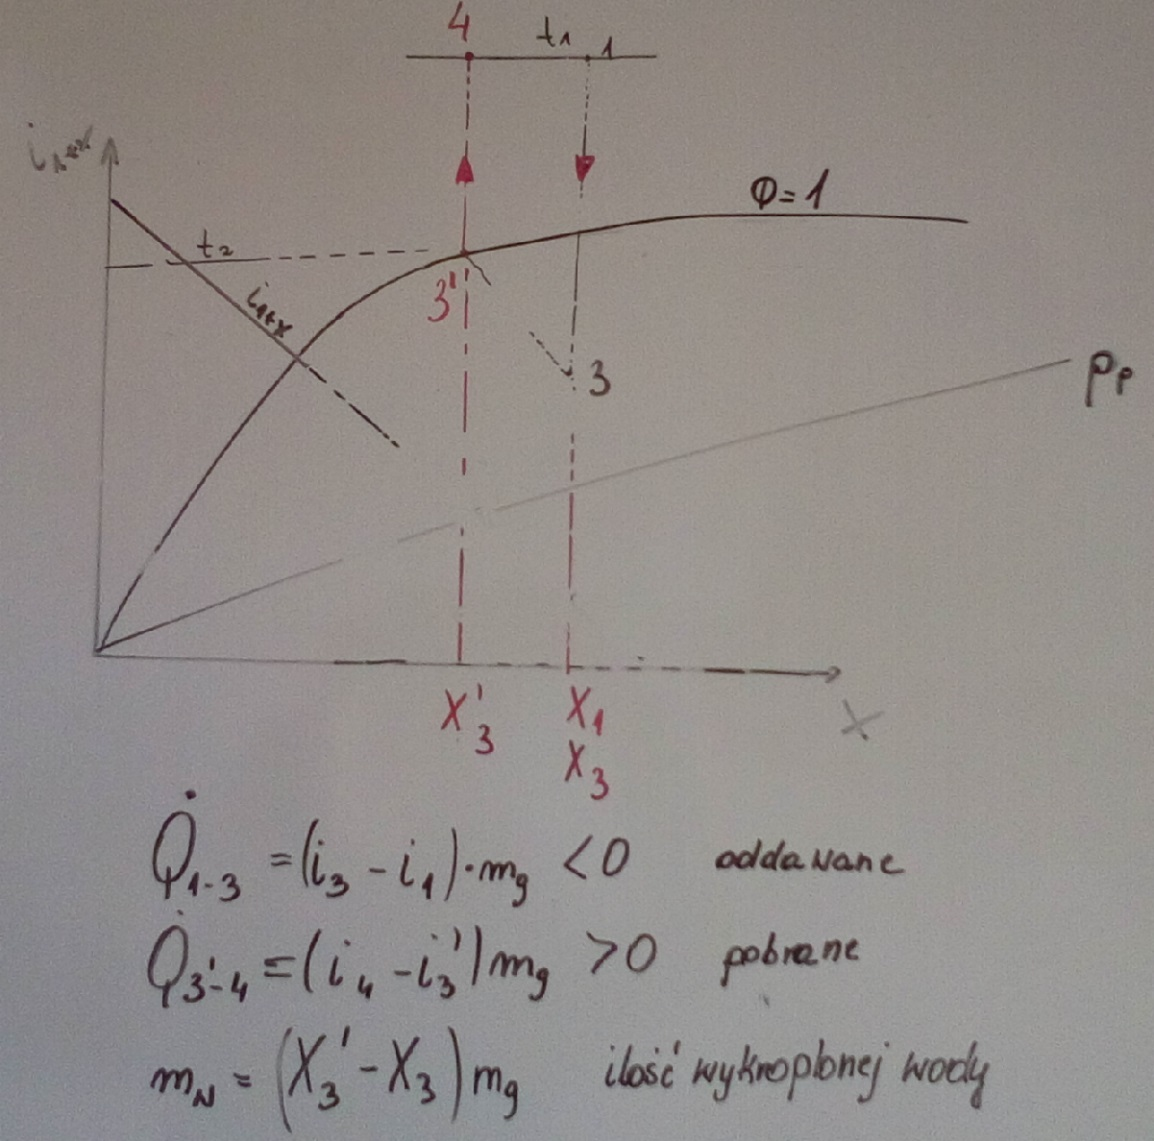 4 t₁ 1
i₁₊ₓ
φ=1
t₂
i₁₊ₓ
3'
3
Pₚ
X'₃ X₁
X₃
X
Q̇₁₋₃ = (i₃ - i₁)·m_g < 0 oddawane
Q̇₃'₋₄ = (i₄ - i₃') m_g > 0 pobrane
m_N = (X₃' - X₃) m_g ilość wykroplonej wody